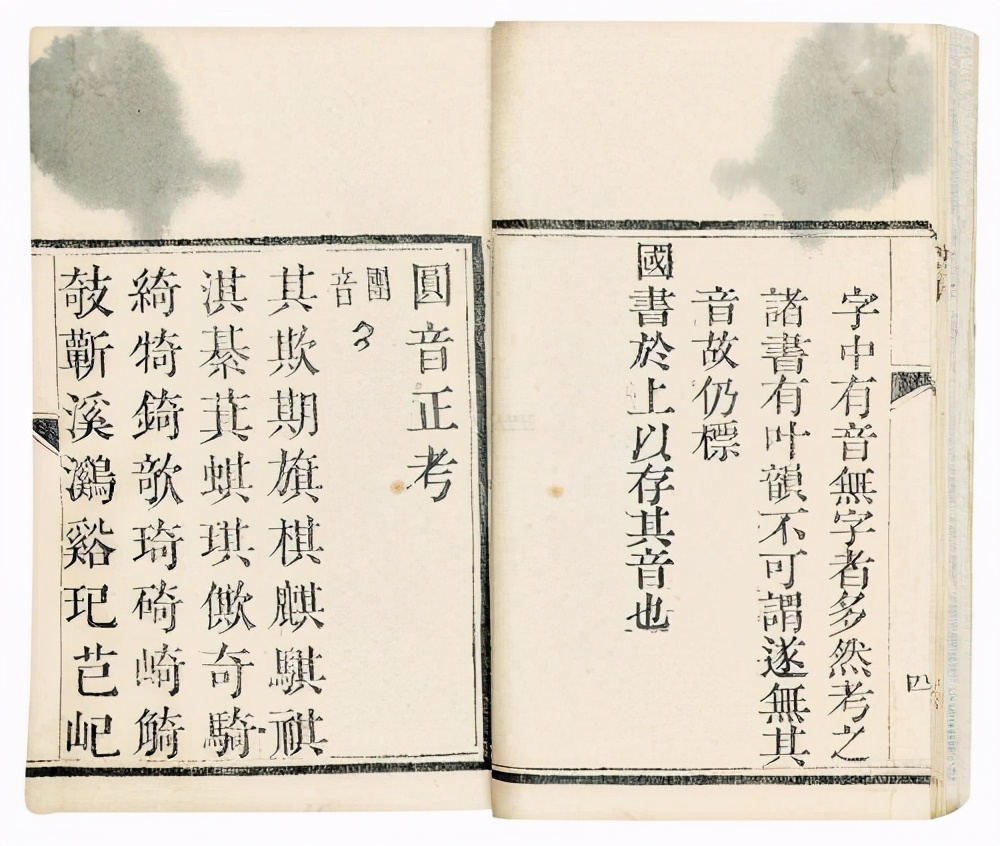 字中有音無字者多然考之
諸書有叶韻不可謂遂無其
音故仍標
國書於上以存其音也
四
圓音正考
團音
其欺期旗棋麒騏祺
淇綦萁蜞琪僛奇騎
綺犄錡欹琦碕崎觭
攲蘄溪鸂谿玘芑屺